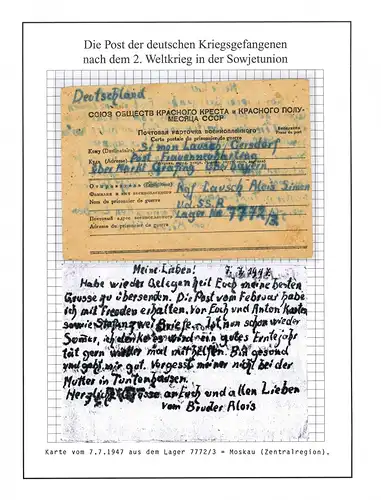 Die Post der deutschen Kriegsgefangenen
nach dem 2. Weltkrieg in der Sowjetunion
Deutschland
СОЮЗ ОБЩЕСТВ КРАСНОГО КРЕСТА и КРАСНОГО ПОЛУ-
МЕСЯЦА СССР
Почтовая карточка военнопленного
Carte postale du prisonnier de guerre
Кому (Destinataire) Simon Lausch, Gersdorf
Куда (Adresse) Post Frauenneuharting
über Markt Grafing Oberbayern
Отправитель (Expéditeur)
Фамилия и имя военнопленного Kgf Lausch Alois Simon
Nom du prisonnier de guerre
Ud.SS.R
Почтовый адрес военнопленного Lager No 7772/3
Adresse du prisonnier de guerre
Meine Lieben! 7.7.1947
Habe wieder Gelegenheit Euch meine besten
Grüsse zu übersenden. Die Post vom Februar habe
ich mit Freuden erhalten. Von Euch und Anton Karten
sowie Stefan zwei Briefe. Ist nun schon wieder
Somer, ich denke es wird ein gutes Erntejahr
tät gern wieder mal mithelfen. Bin gesund
und geht mir gut. Vergesst meiner nicht bei der
Mutter in Tuntenhausen.
Herzliche Grüsse an Euch und allen Lieben
vom Bruder Alois
Karte vom 7.7.1947 aus dem Lager 7772/3 = Moskau (Zentralregion).